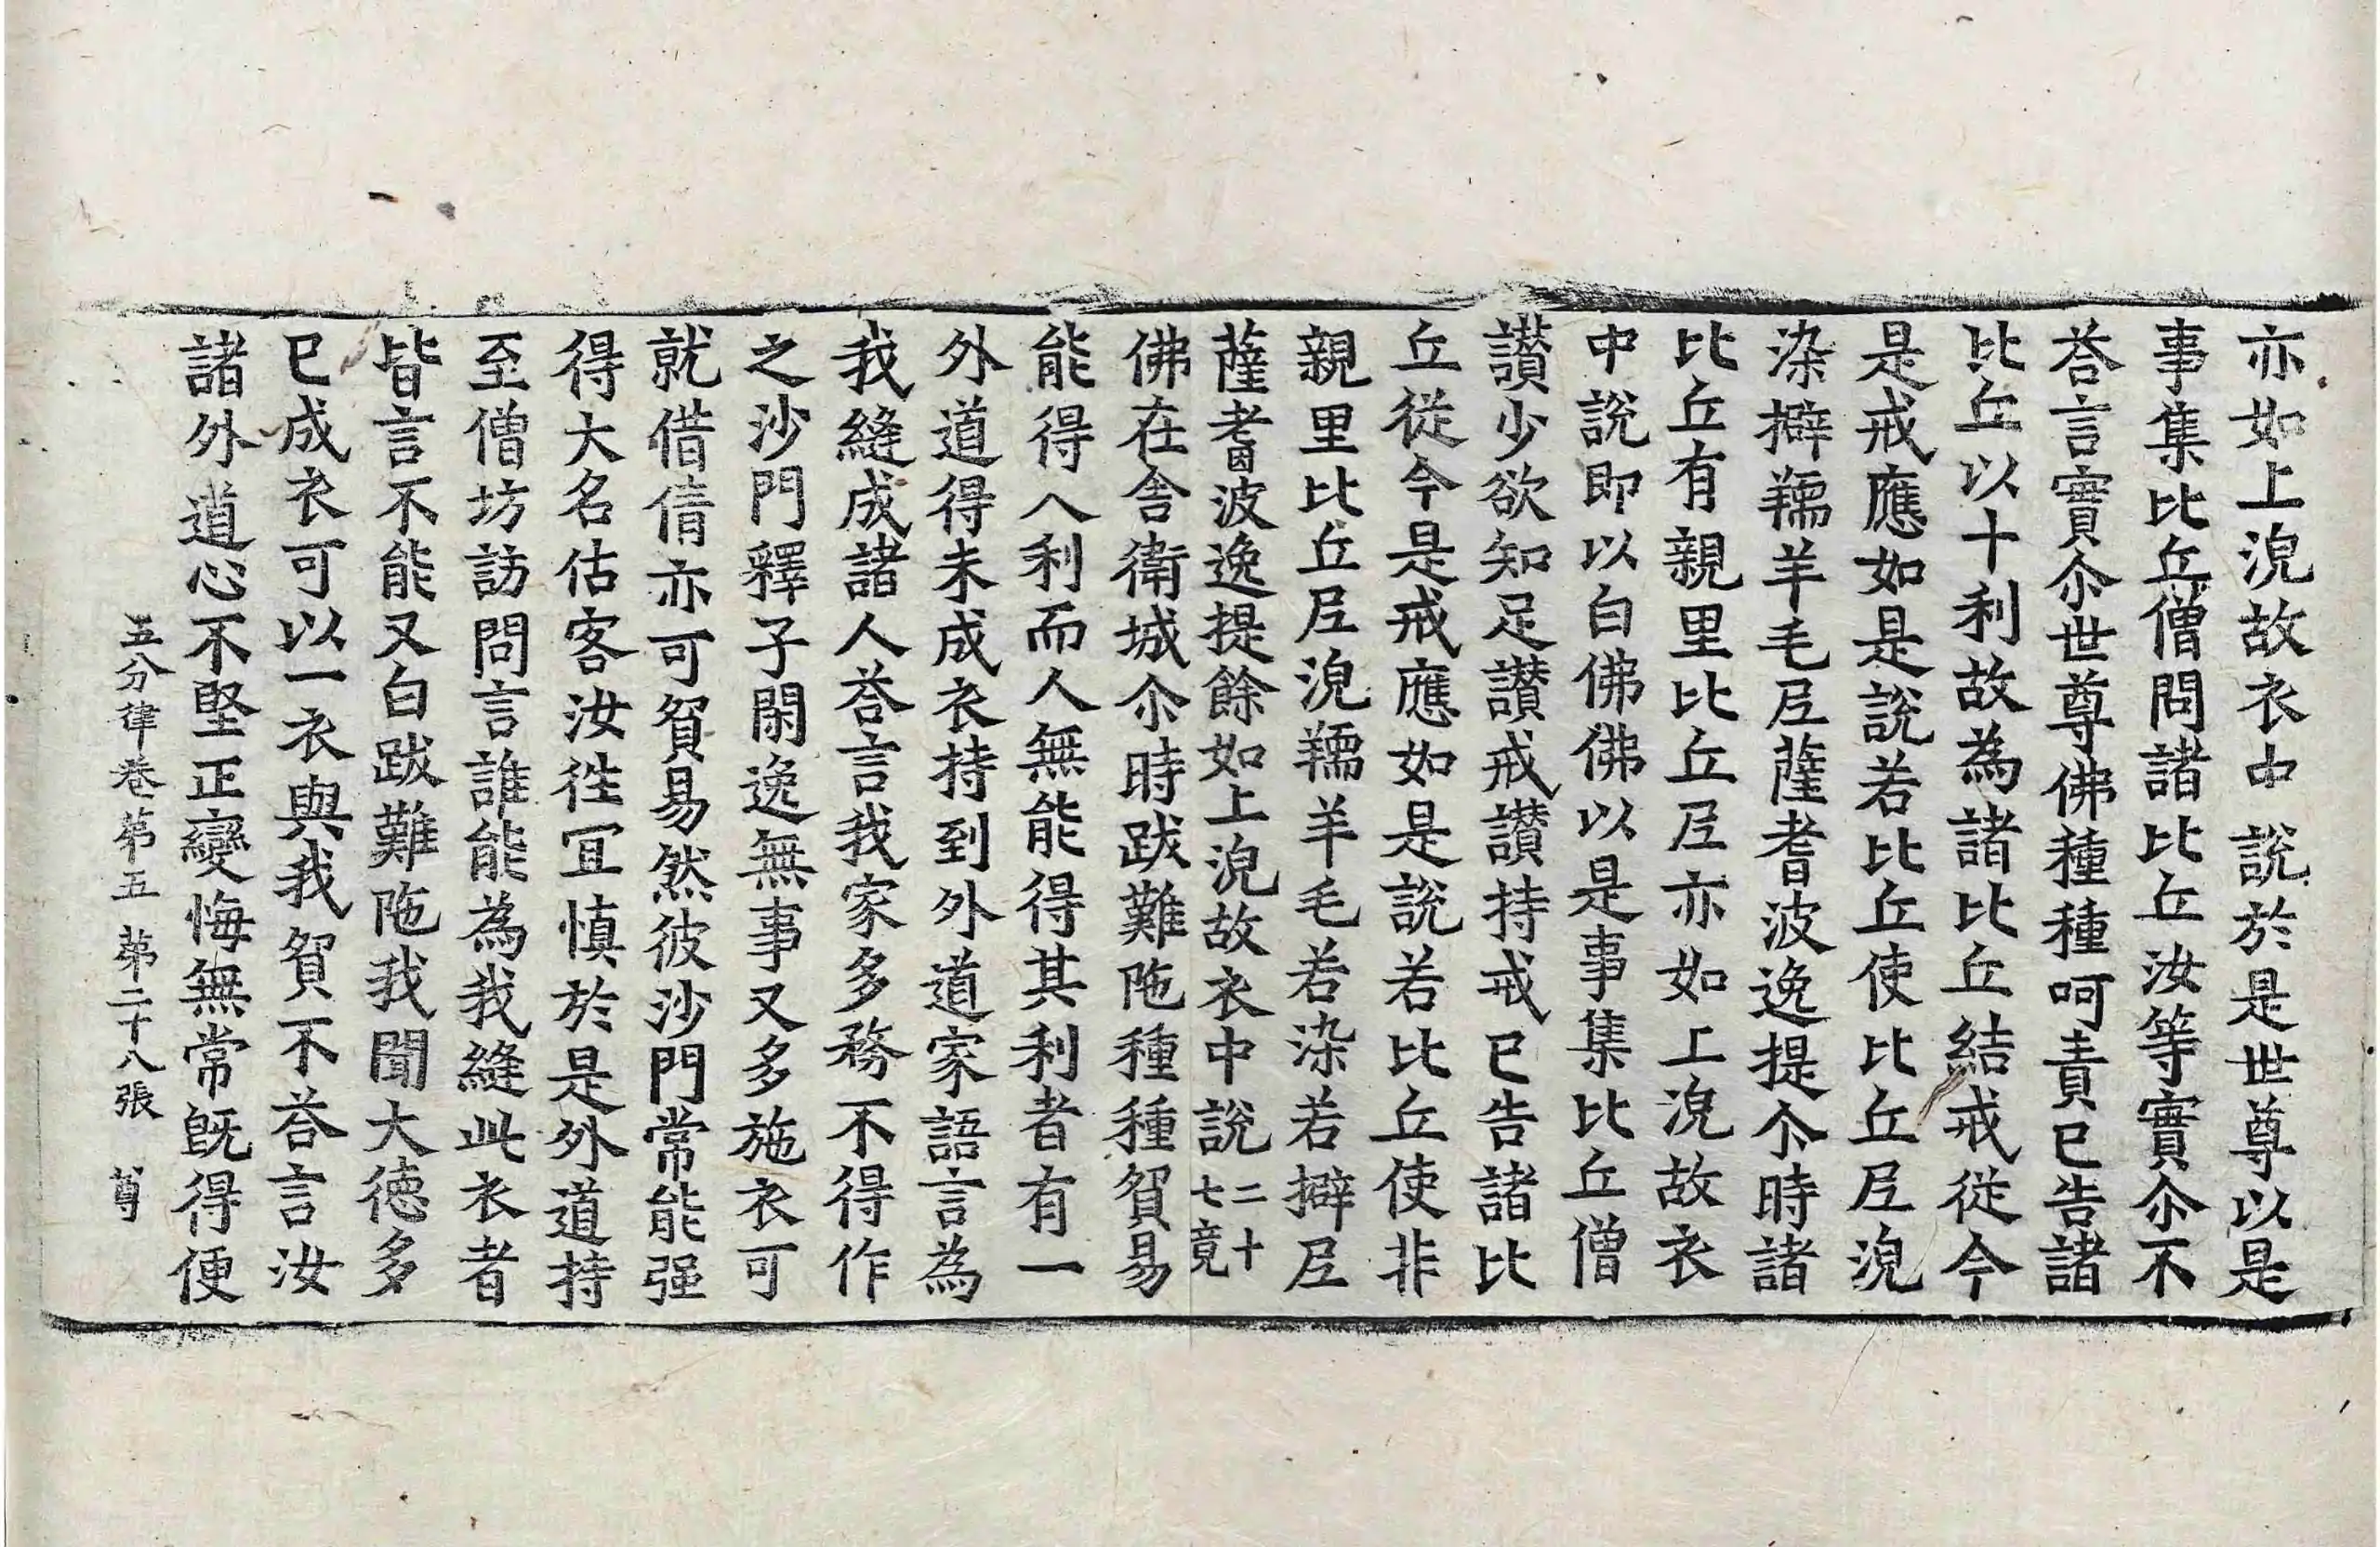 亦如上浣故衣中說於是世尊以是
事集比丘僧問諸比丘汝等實尒不
荅言實尒世尊佛種種呵責已告諸
比丘以十利故為諸比丘結戒從今
是戒應如是說若比丘使比丘尼浣
染擗羺羊毛尼薩耆波逸提尒時諸
比丘有親里比丘尼亦如上浣故衣
中說即以白佛佛以是事集比丘僧
讃少欲知足讃戒讃持戒已告諸比
丘從今是戒應如是說若比丘使非
親里比丘尼浣羺羊毛若染若擗尼
薩耆波逸提餘如上浣故衣中說二十七竟
佛在舍衛城尒時跋難陁種種貿易
能得八利而人無能得其利者有一
外道得未成衣持到外道家語言為
我縫成諸人荅言我家多務不得作
之沙門釋子閑逸無事又多施衣可
就借倩亦可貿易然彼沙門常能强
得大名估客汝往宜慎於是外道持
至僧坊訪問言誰能為我縫此衣者
皆言不能又白跋難陁我聞大德多
已成衣可以一衣與我貿不荅言汝
諸外道心不堅正變悔無常旣得便
五分律卷第五 第二十八張 尊